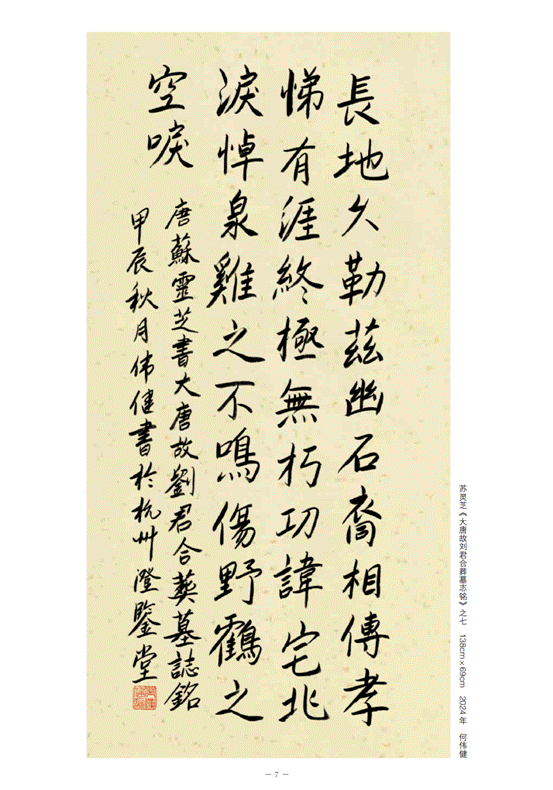 長地久勒茲幽石裔相傳孝
悌有涯終極無朽功諱宅兆
淚悼泉雞之不鳴傷野鶴之
空唳
唐蘇靈芝書大唐故劉君合葬墓誌銘
甲辰秋月伟健書於杭州澄鑒堂
苏灵芝《大唐故刘君合葬墓志铭》之七 138cm×69cm 2024年 何伟健
— 7 —